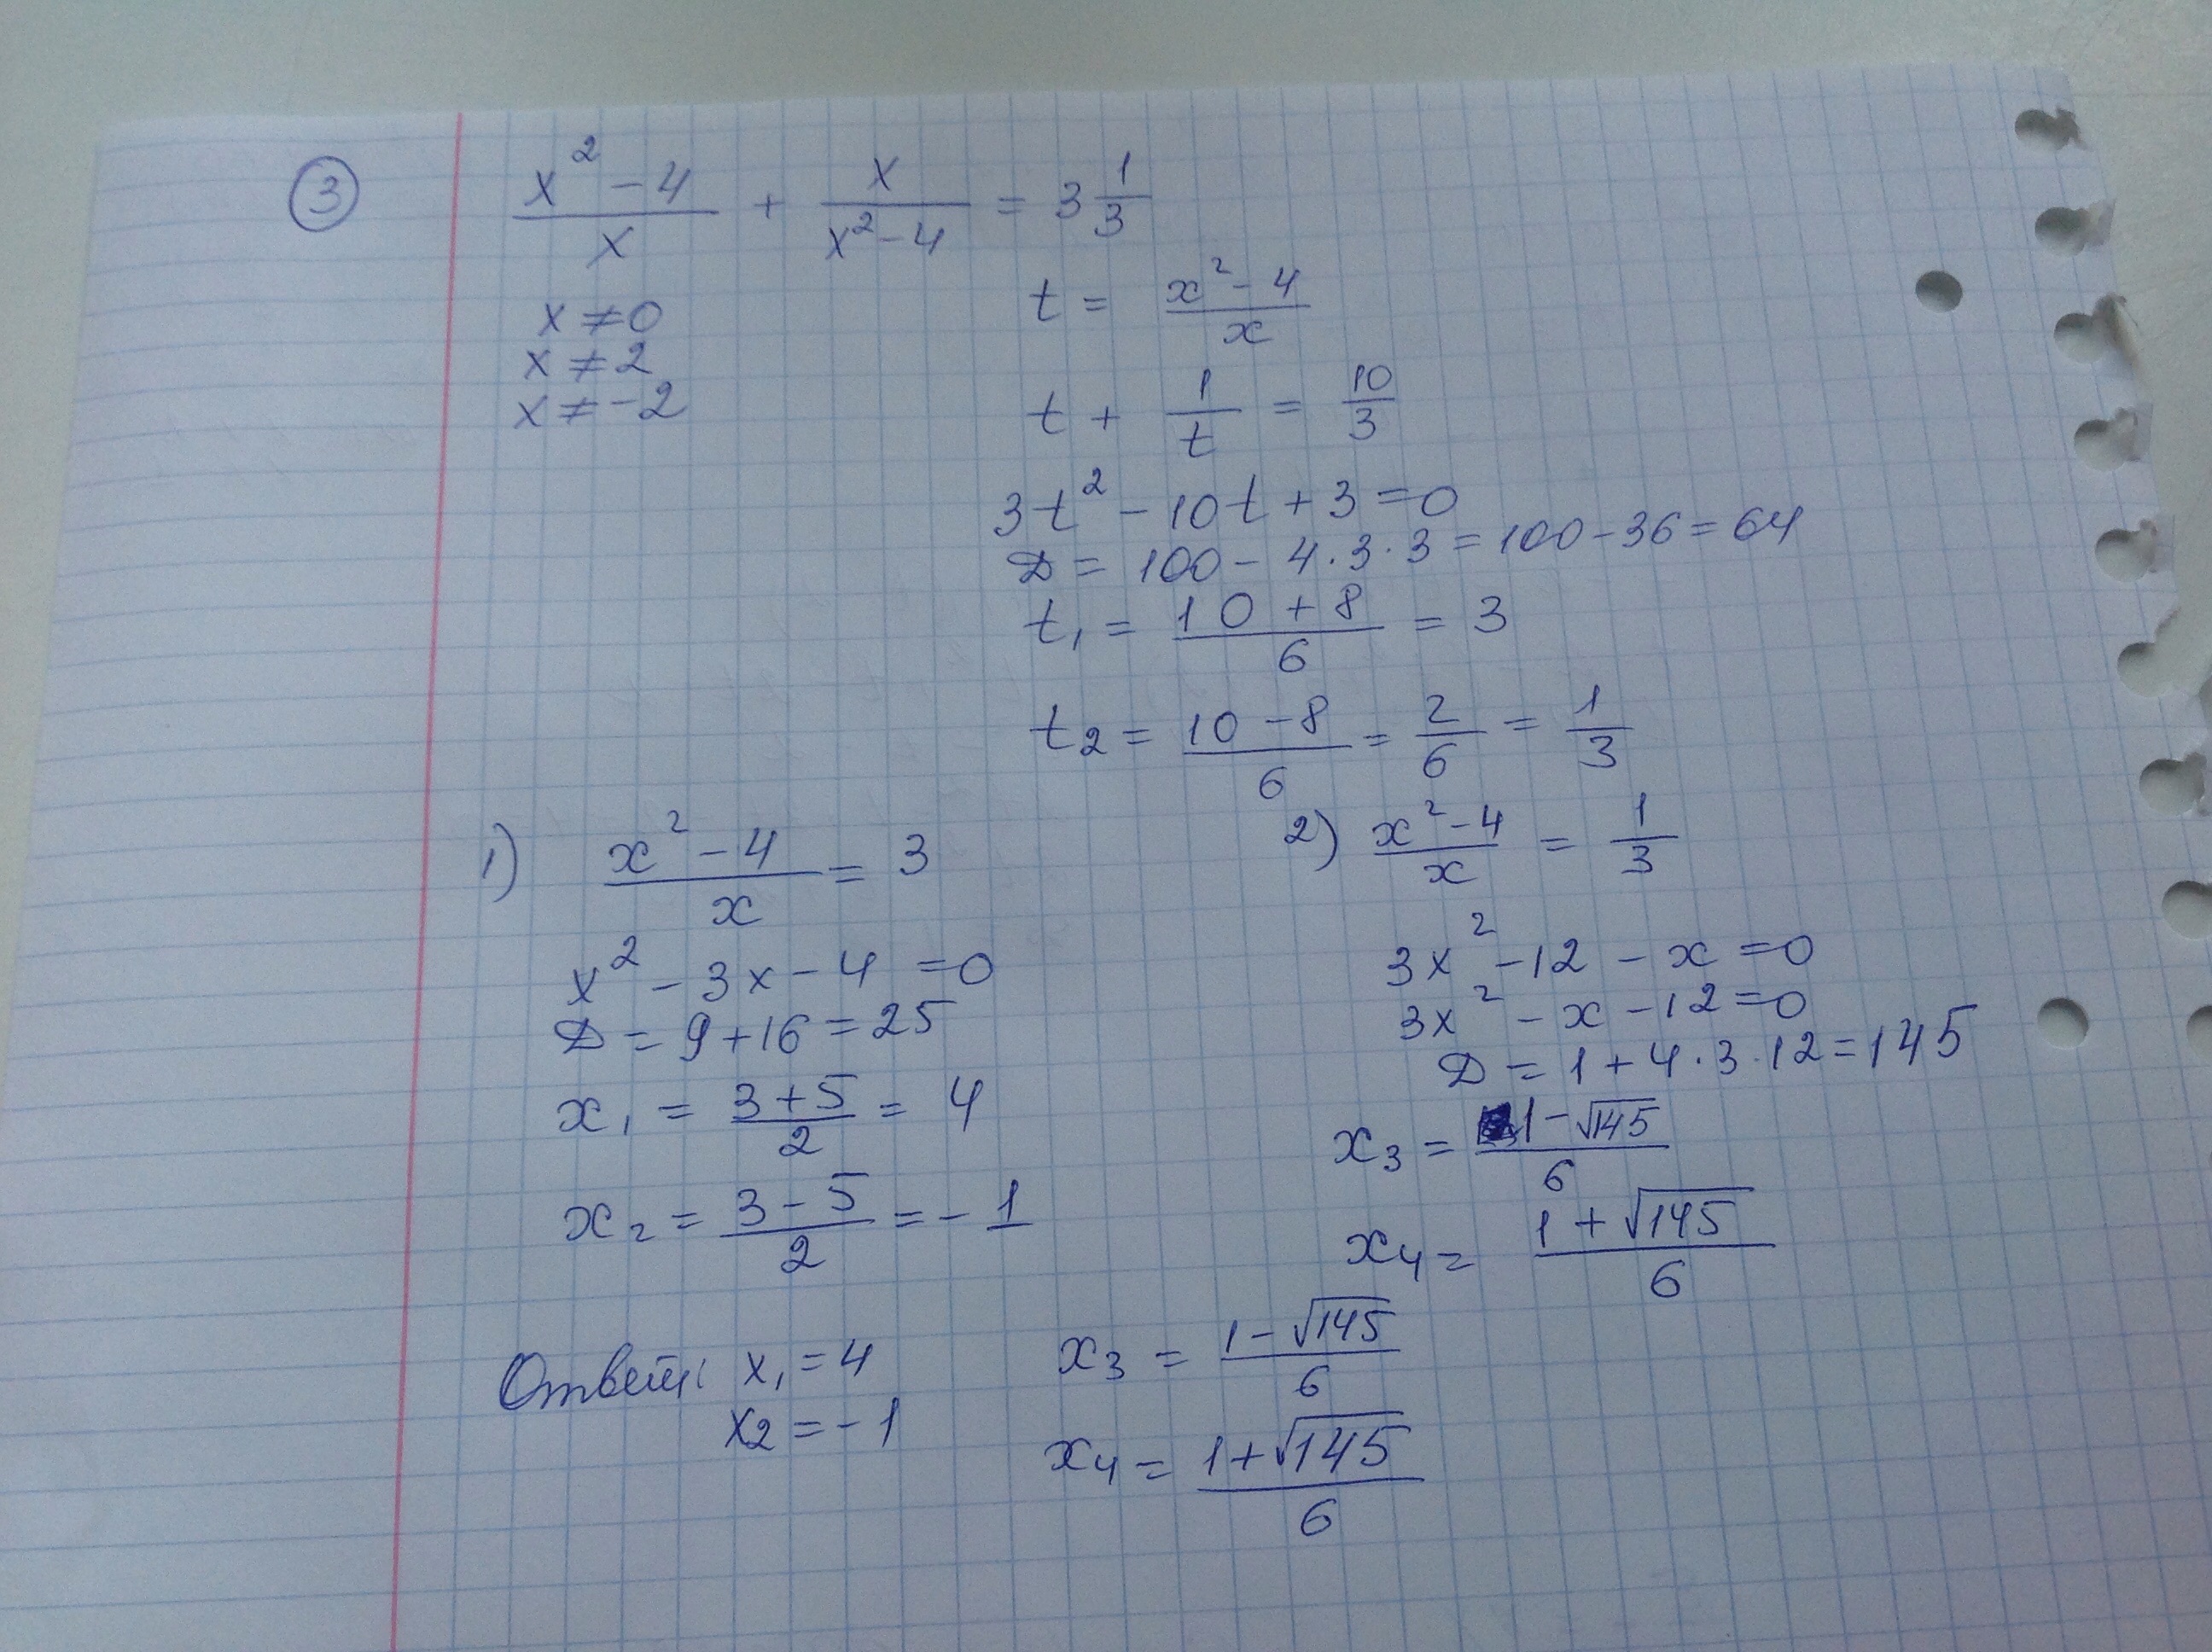 ③ (x² - 4)/x + x/(x² - 4) = 3 1/3
x ≠ 0
x ≠ 2
x ≠ -2
t = (x² - 4)/x
t + 1/t = 10/3
3t² - 10t + 3 = 0
D = 100 - 4·3·3 = 100 - 36 = 64
t₁ = (10 + 8)/6 = 3
t₂ = (10 - 8)/6 = 2/6 = 1/3
1) (x² - 4)/x = 3
x² - 3x - 4 = 0
D = 9 + 16 = 25
x₁ = (3 + 5)/2 = 4
x₂ = (3 - 5)/2 = -1
2) (x² - 4)/x = 1/3
3x² - 12 - x = 0
3x² - x - 12 = 0
D = 1 + 4·3·12 = 145
x₃ = (1 - √145)/6
x₄ = (1 + √145)/6
Ответ: x₁ = 4
x₂ = -1
x₃ = (1 - √145)/6
x₄ = (1 + √145)/6